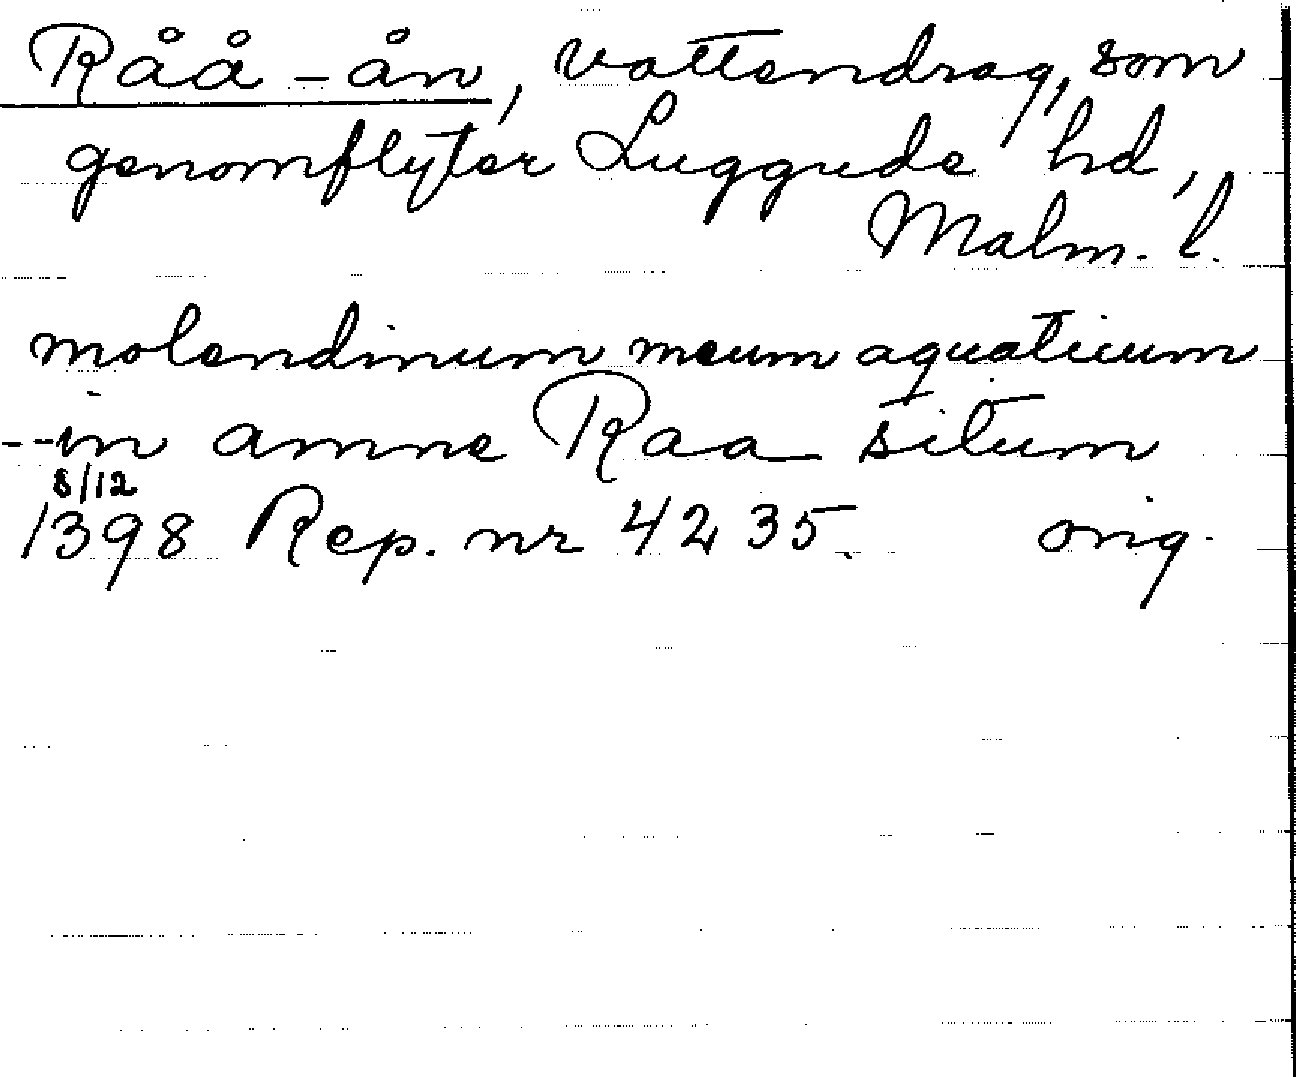 Råå-ån, vattendrag, som
genomflyter Luggude hd,
Malm. l.
molendinum meum aquaticum
--in amne Raa situm
8/12
1398 Rep. nr 4235. orig.